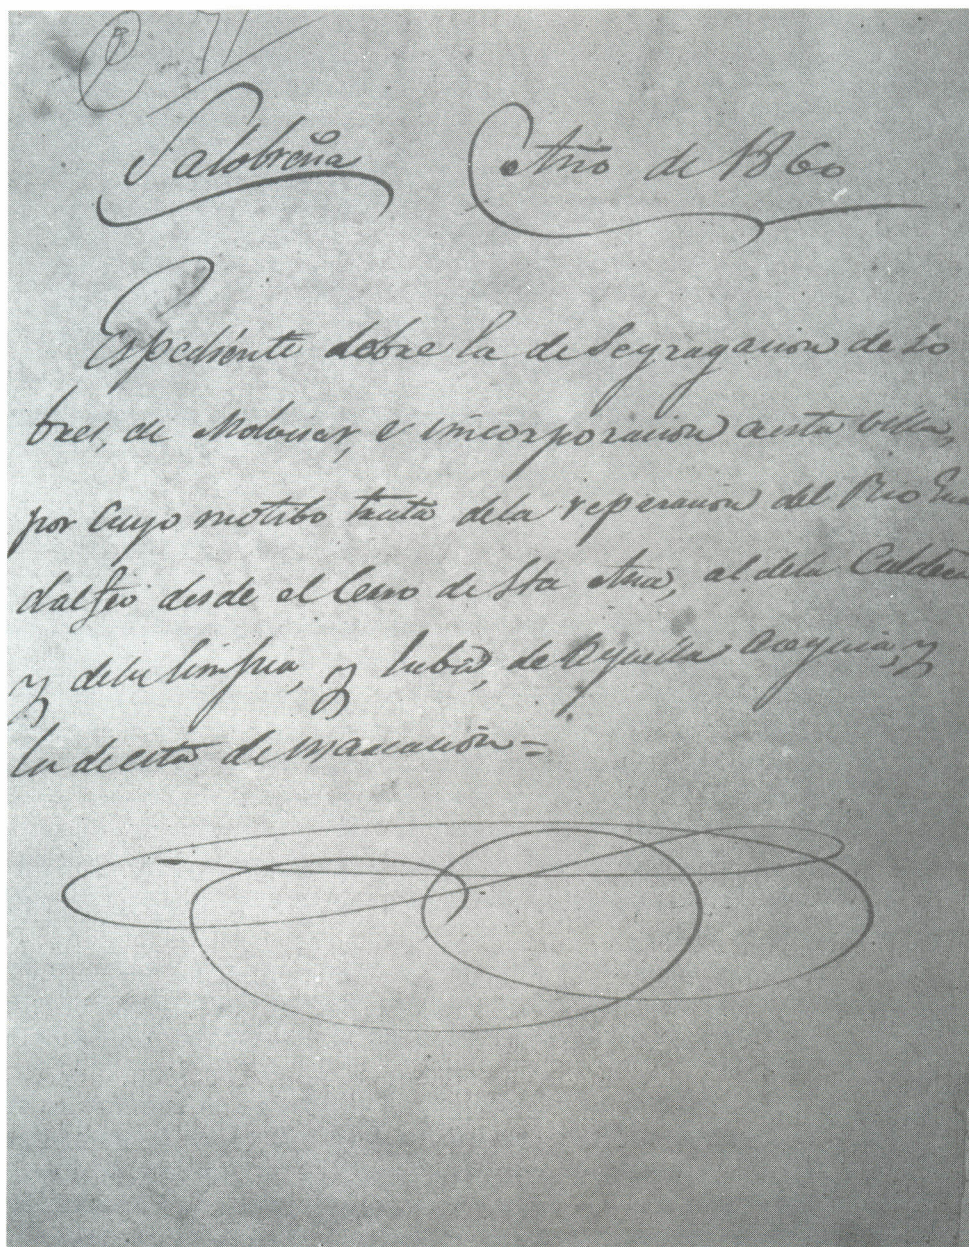 71
Salobreña Año de 1860
Espediente sobre la desegragacion de Lo
bres, de Molvisar, e incorporacion a esta villa,
por cuyo motibo trata dela reparacion del Rio Gua
dalfeo desde el Cerro de Sta Ana, al dela Caldera
y dela limpia, y de Aquella Acequia, y
la de esta demarcacion =